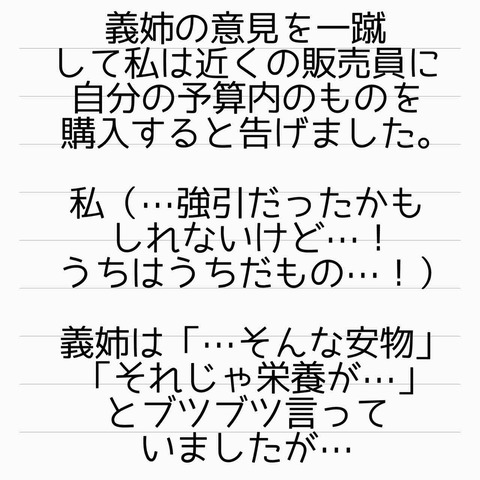 義姉の意見を一蹴
して私は近くの販売員に
自分の予算内のものを
購入すると告げました。
私（…強引だったかも
しれないけど…！
うちはうちだもの…！）
義姉は「…そんな安物」
「それじゃ栄養が…」
とブツブツ言って
いましたが…